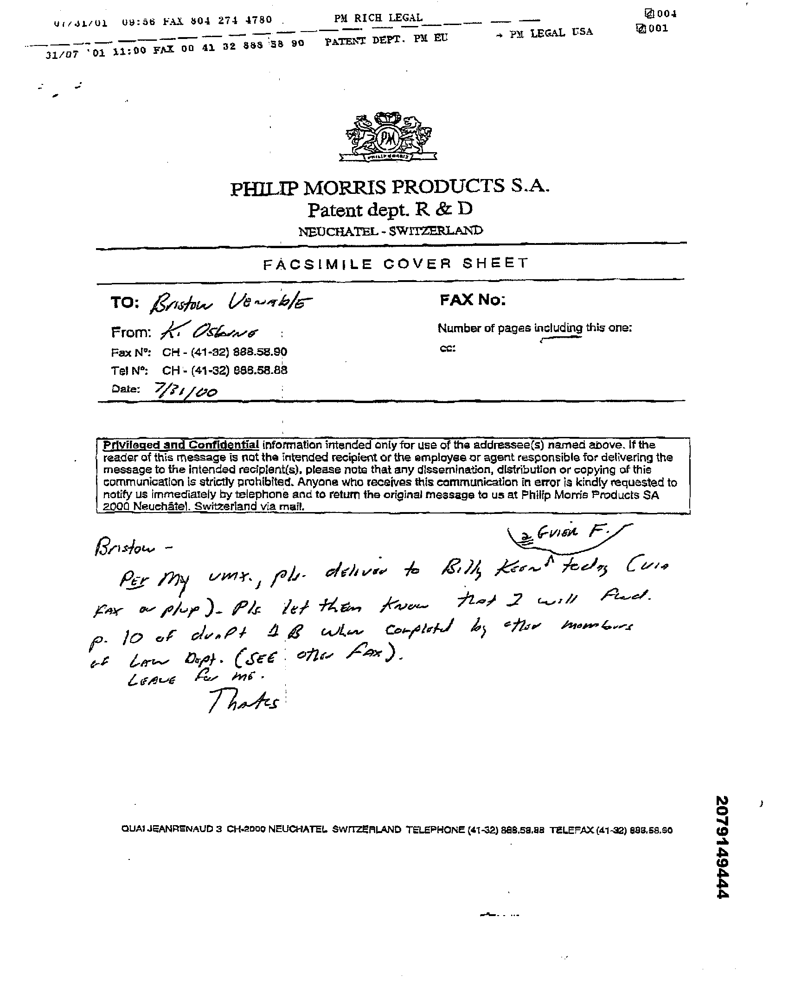 07/31/01 09:56 FAX 804 274 4780 PM RICH LEGAL 004
31/07 '01 11:00 FAX 00 41 32 888 58 90 PATENT DEPT. PM EU → PM LEGAL USA 001
PM
PHILIP MORRIS
PHILIP MORRIS PRODUCTS S.A.
Patent dept. R & D
NEUCHATEL - SWITZERLAND
FACSIMILE COVER SHEET
TO: Bristow Venable FAX No:
From: K. Number of pages including this one:
Fax N°: CH - (41-32) 888.58.90 cc:
Tel N°: CH - (41-32) 888.58.88
Date: 7/31/00
Privileged and Confidential information intended only for use of the addressee(s) named above. If the
reader of this message is not the intended recipient or the employee or agent responsible for delivering the
message to the intended recipient(s), please note that any dissemination, distribution or copying of this
communication is strictly prohibited. Anyone who receives this communication in error is kindly requested to
notify us immediately by telephone and to return the original message to us at Philip Morris Products SA
2000 Neuchâtel, Switzerland via mail.
F.
Bristow -
Per my vmx., pls. deliver to Billy today (via
Fax or ). Pls let them know that I will
p. 10 of when completed by other members
of Law Dept. (SEE other Fax).
Leave for me.
Thanks
QUAI JEANRENAUD 3 CH-2000 NEUCHATEL SWITZERLAND TELEPHONE (41-32) 888.58.88 TELEFAX (41-32) 888.58.90
2079149444